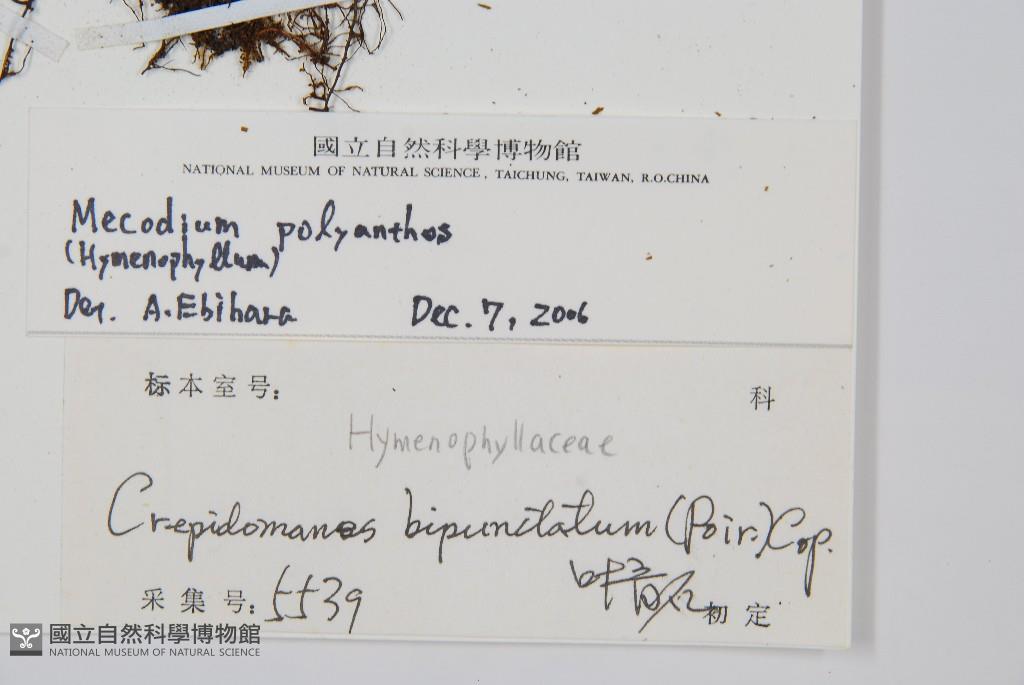 國立自然科學博物館
NATIONAL MUSEUM OF NATURAL SCIENCE, TAICHUNG, TAIWAN, R.O.CHINA
Mecodium polyanthos
(Hymenophyllum)
Det. A.Ebihara Dec. 7, 2006
标本室号: 科
Hymenophyllaceae
Crepidomanes bipunctatum (Poir.) Cop.
采集号: 5539 初定
國立自然科學博物館
NATIONAL MUSEUM OF NATURAL SCIENCE